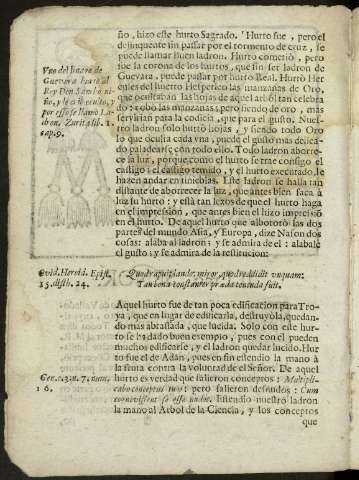 ño, hizo este hurto Sagrado. Hurto fue, pero el
delinquente sin passar por el tormento de cruz, se
puede llamar buen ladron. Hurto cometiò, pero
fue la corona de los hurtos, que sin ser ladron de
Guevara, puede passar por hurto Real. Hurtò Her
cules del huerto Hesperico las manzanas de Oro,
que ocultaban las hojas de aquel arbol tan celebra
do: robo las manzanas, pero siendo de oro, mas
servirian para la codicia, que para el gusto. Nues-
tro ladron solo hurtò hojas, y siendo todo Oro
lo que oculta cada vna, puede el gusto mas delica-
do paladearse con todo ello. Todo ladron aborre-
ce la luz, porque como el hurto se trae consigo el
castigo: el castigo temido, y el hurto executado, le
hazen andar en tinieblas. Este ladron se halla tan
distante de aborrecer la luz, que antes bien saca à
luz su hurto: y està tan lexos de que el hurto haga
en el impression, que antes bien el hizo impression
en el hurto. De aquel hurto que alborotò las dos
partes del mundo Asia, y Europa, dize Nason dos
cosas: alaba al ladron; y se admira de el: alabale
el gusto; y se admira de la restitucion:
Vno del linage de
Guevara hurtò al
Rey Don Sancho ni-
ño, y le
por esso se llamò La-
dron. Zurit. lib. 1.
cap. 9.
Ovid. Heroid. Epist.
15. disth. 24.
unquam:
Tam bona constanter præda tenenda fuit.
Aquel hurto fue de tan poca edificacion para Tro-
ya, que en lugar de edificarla, destruyòla, quedan-
do mas abrassada, que lucida. Solo con este hur-
to se ha dado buen exemplo, pues con el pueden
muchos edificarse, y el ladron quedar lucido. Hur
to fue el de Adan, pues en fin estendiò la mano à
la fruta contra la voluntad de el Señor. De aquel
hurto es verdad que salieron conceptos: Multipli-
cabo conceptus tuos: pero salieron desnudos: Cum
cognovissent se esse nudos. Estendiò nuestro ladron
la mano al Arbol de la Ciencia, y los conceptos
Gen. c. 3. v. 7. num.
16.
que